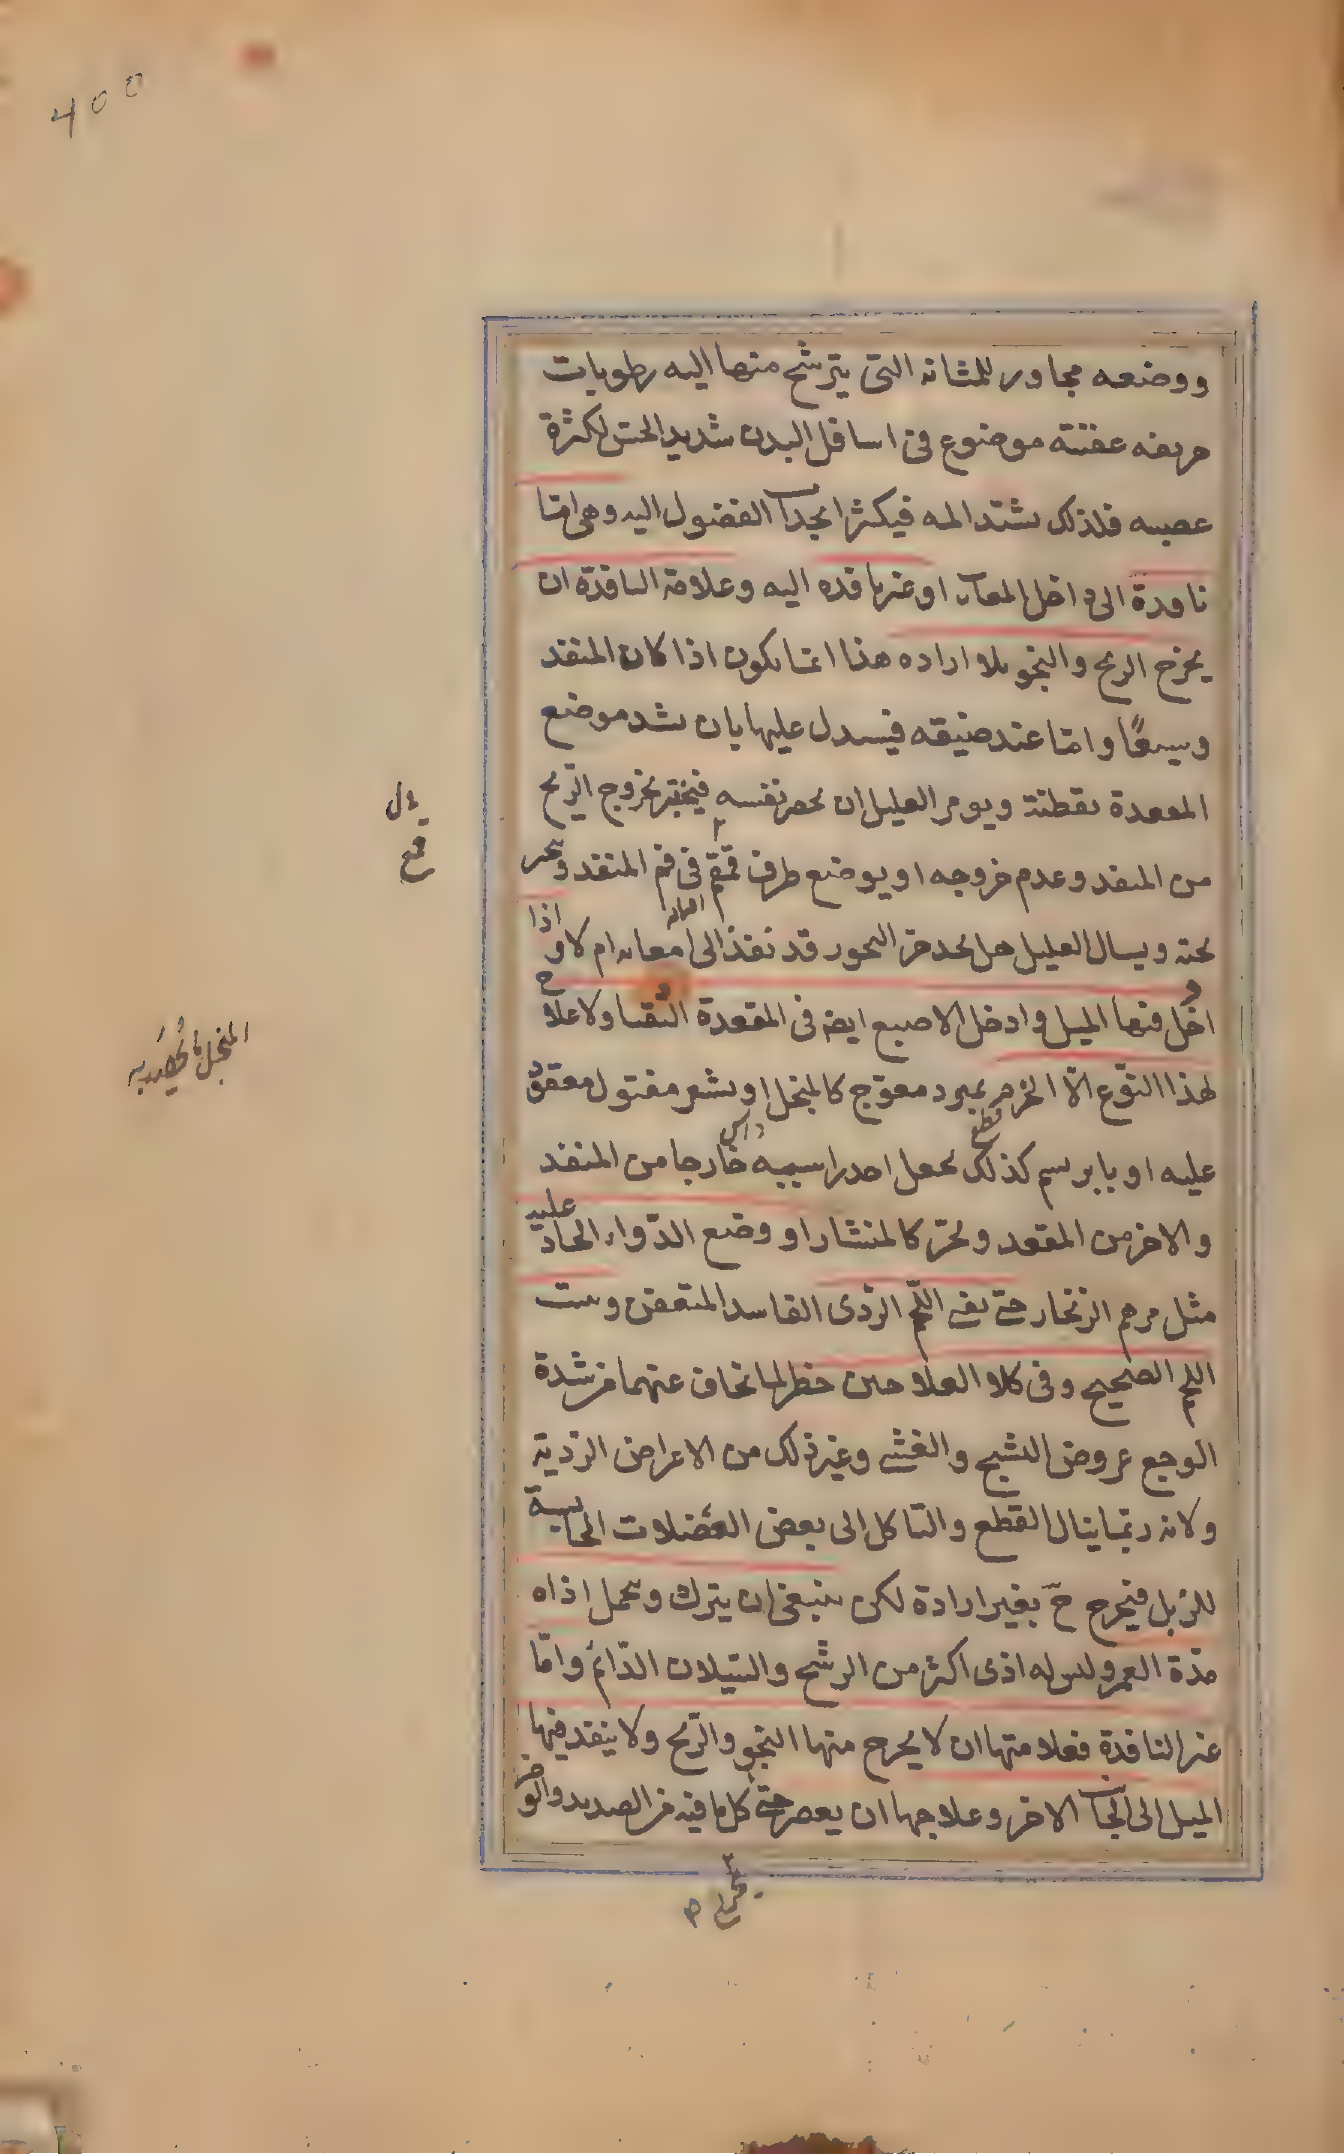 ووضعه مجاور للمثانه التى يترشح منها اليه رطوبات
حريفه عفنته موضوع فى اسافل البدن شديد الحس لكثرة
عصبه فلذلك يشتد المه فيكثر انجذاب الفضول اليه وهى امّا
نافدة الى داخل المعاء او غير نافده اليه وعلامة النافذة ان
يخرج الريح والنجو بلا اراده هذا انما يكون اذا كان المنفذ
وسيعًا وامّا عند ضيقه فيستدل عليها بان يشد موضع
المقعدة بقطنة ويومر العليل ان يحصر نفسه فيختبر بخروج الرّيح
من المنفد وعدم خروجه او يوضع طرف قمع فى فم المنفد ويبخر
تحته ويسال العليل هل يجد حرّ البخور قد نفذ الى امعائه ام لا و اذا
ادخل فيها الميل وادخل الاصبع ايضا فى المقعدة التقيا ولا علاج
لهذا النّوع الّا الخرم بمبرد معوّج كالمنجل او بشعر مفتول معقود
عليه او بابريسم كذلك يجعل احد راسيه خارجا من المنفذ
والاخر من المقعد ويحزّ كالمنشار او وضع الدّواء الحادّ عليه
مثل مرهم الزنجار حتى يفنى اللّحم الرّدى الفاسد المتعفن وينبت
اللحم الصحيح وفى كلا العلاجين خطر لما يخاف عنهما من شدة
الوجع عروض التشنج والغشى وغير ذلك من الاعراض الرّدية
ولانه ربّما ينال القطع والتاكل الى بعض العضلات الحابسة
للزبل فيخرج ح بغير ارادة لكن ينبغى ان يترك ويحمل اذاه
مدّة العمر وليس له اذى اكثر من الرشح والسّيلان الدّائم وامّا
غير النافذة فعلامتها ان لا يخرج منها النجو والرّيح ولا ينفد فيها
الميل الى الجانب الاخر وعلاجها ان يعصر حتى كل ما فيه من الصديد والوضر
يخرج
قمع
400